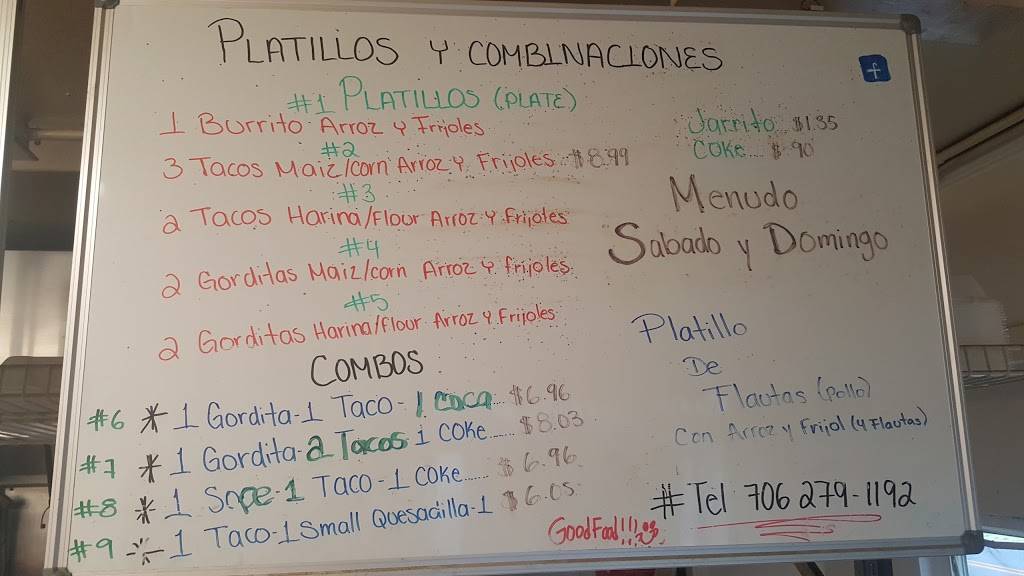 PLATILLOS Y COMBINACIONES
f
#1 PLATILLOS (PLATE)
1 Burrito Arroz y Frijoles
#2
3 Tacos Maiz/corn Arroz y Frijoles $8.99
#3
2 Tacos Harina/Flour Arroz y Frijoles
#4
2 Gorditas Maiz/corn Arroz y frijoles
#5
2 Gorditas Harina/flour Arroz y Frijoles
Jarrito $1.35
Coke.... $ 90
Menudo
Sabado y Domingo
COMBOS
#6 * 1 Gordita-1 Taco-1 coca $6.96
#7 * 1 Gordita-2 Tacos 1 COKE...... $8.03
#8 * 1 Sope-1 Taco-1 COKE...... $6.96
#9 * 1 Taco-1 Small Quesadilla-1 $6.05
Platillo
De
Flautas (pollo)
Con Arroz y Frijol (4 Flautas)
# Tel 706 279-1192
Good Food!!!